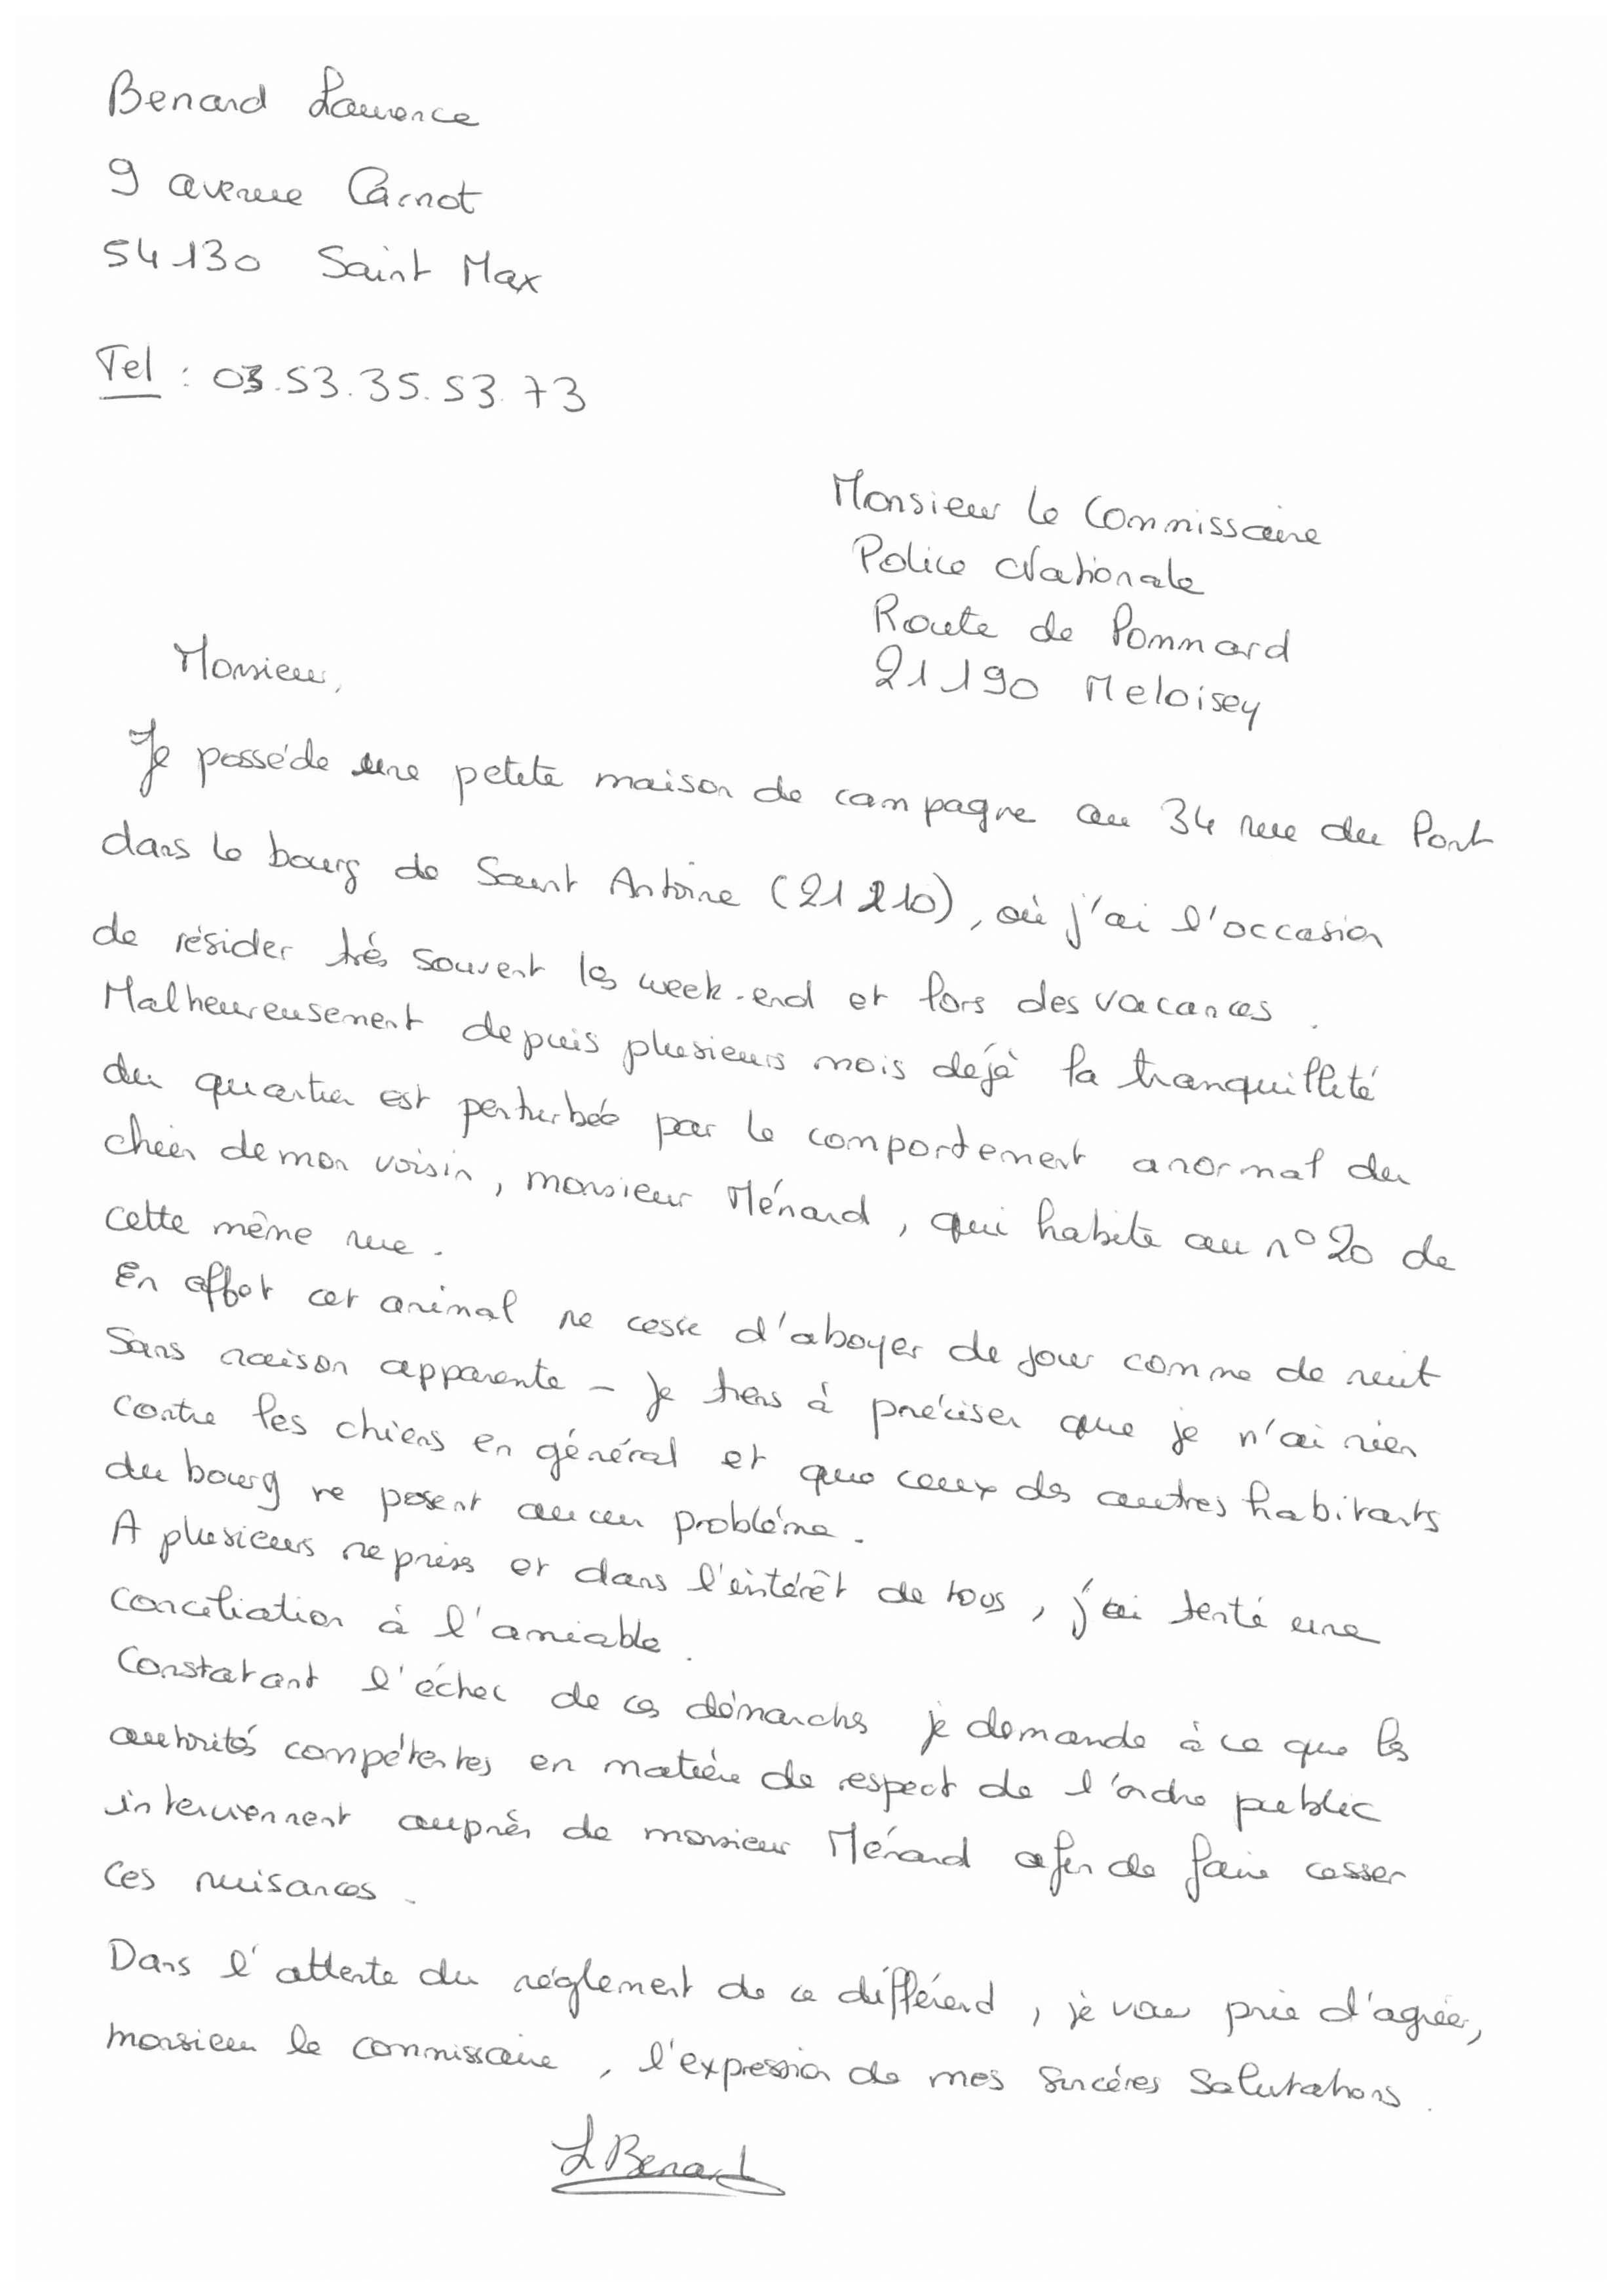 Benard Laurence
9 avenue Carnot
54130 Saint Max
Tel : 03.53.35.53.73
Monsieur le Commissaire
Police Nationale
Route de Pommard
21190 Meloisey
Monsieur,
Je posséde une petite maison de campagne au 34 rue du Pont
dans le bourg de Saint Antoine (21210), où j'ai l'occasion
de résider trés souvent les week-end et lors des vacances.
Malheureusement depuis plusieurs mois déjà la tranquillité
du quartier est perturbée par le comportement anormal du
chien de mon voisin, monsieur Ménard, qui habite au n°20 de
cette même rue.
En effet cet animal ne cesse d'aboyer de jour comme de nuit
sans raison apparente - Je tiens à préciser que je n'ai rien
contre les chiens en général et que ceux des autres habitants
du bourg ne posent aucun probléme.
A plusieurs reprises et dans l'intérêt de tous, j'ai tenté une
conciliation à l'amiable.
Constatant l'échec de ces démarches je demande à ce que les
autorités compétentes en matière de respect de l'ordre public
interviennent auprès de monsieur Ménard afin de faire cesser
ces nuisances.
Dans l'attente du réglement de ce différend, je vous prie d'agréer,
monsieur le commissaire, l'expression de mes sincéres salutations.
L Benard